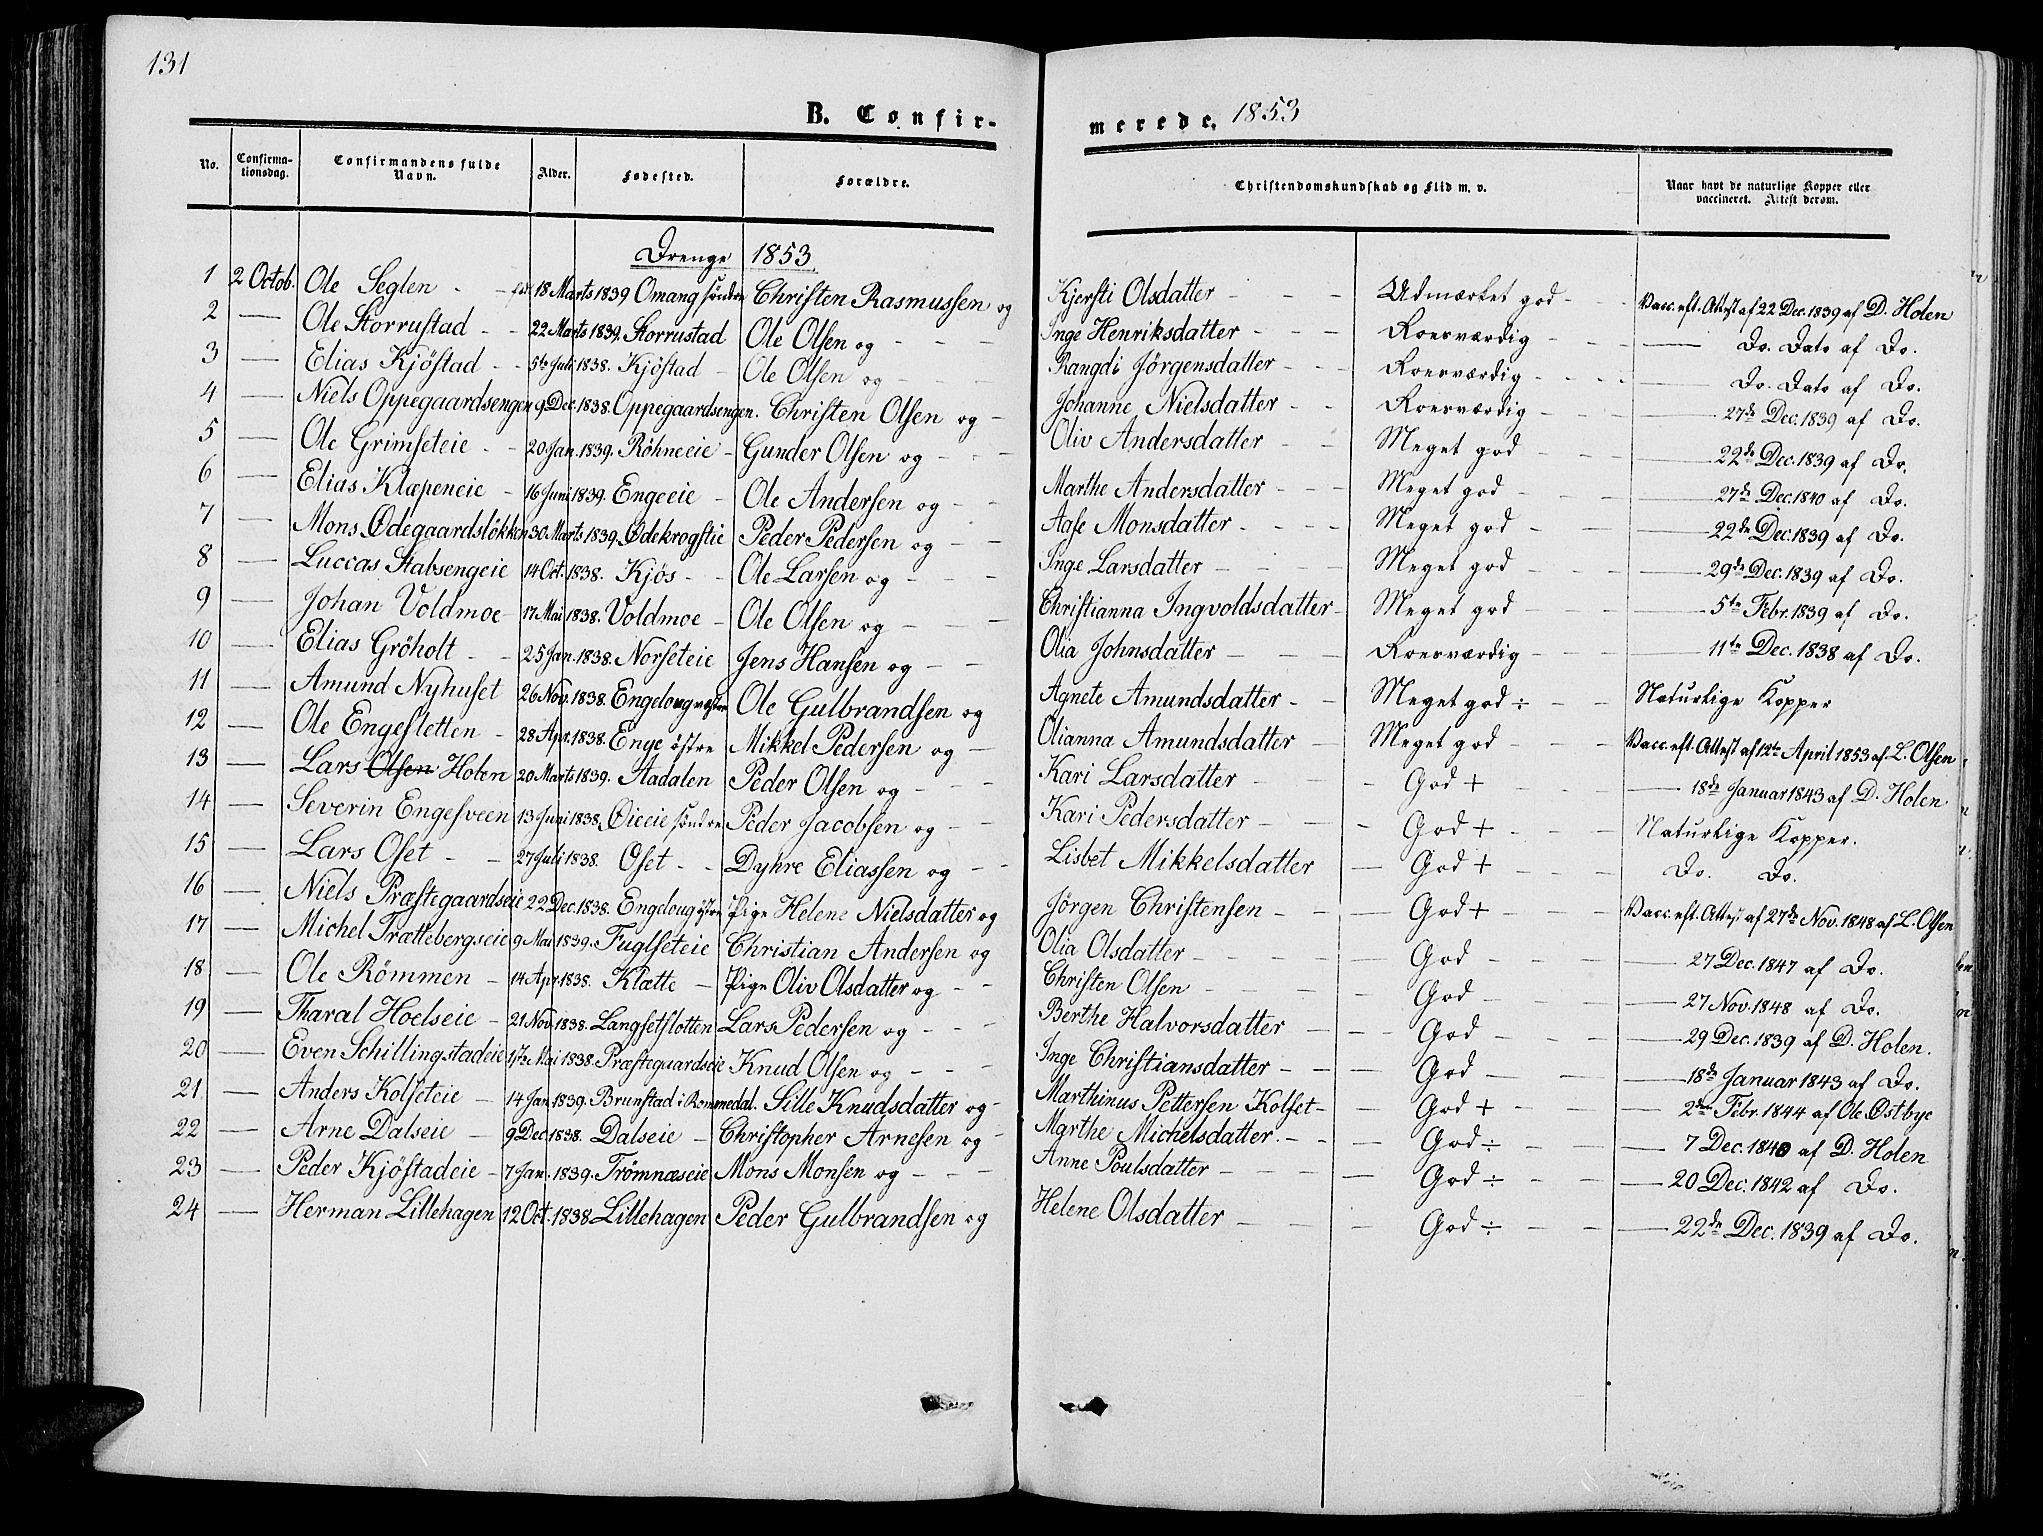 131
B. Confirmerede. 1853
No. Confirmationsdag. Confirmandens fulde Navn. Alder. Fødested. Forældre. Christendomskundskab og Flid m. v. Naar havt de naturlige Kopper eller vaccineret. Attest derom.
Drenge 1853.
1 2 Octob. Ole Seglen - - 18 Marts 1839 Omang søndre Christen Rasmussen og Kjersti Olsdatter - - - Udmærket god - - Vacc. eft. Attest af 22 Dec. 1839 af D. Holen
2 — Ole Storrustad - - 22 Marts 1839. Storrustad Ole Olsen og - - - Inge Henriksdatter - - - Roesværdig - - - — Do. Dato af Do.
3 — Elias Kjöstad - - 5te Juli 1838. Kjöstad - Ole Olsen og - - - Rangdi Jörgensdatter - - - Roesværdig - - - — Do. Dato af Do.
4 — Niels Oppegaardsengen 9 Dec. 1838. Oppegaardsengen. Christen Olsen og - Johanne Nielsdatter - - Roesværdig - - - — 27de Dec. 1839 af Do.
5 — Ole Grimseteie - - 20 Jan. 1839. Röhneeie - Gunder Olsen og - - - Oliv Andersdatter - - Meget god - - - — 22de Dec. 1839 af Do.
6 — Elias Klæpeneie - 16 Juni 1839. Engeeie - Ole Andersen og - - Marthe Andersdatter - - - Meget god - - - — 27de Dec. 1840 af Do.
7 — Mons Ødegaardslökken 30 Marts 1839. Ødekrogstie Peder Pedersen og - - Aase Monsdatter - - - Meget god - - — 22de Dec. 1839 af Do.
8 — Luccas Stabsengeie 14 Oct. 1838. Kjös - - Ole Larsen og - - - Inge Larsdatter - - - Meget god - - - — 29de Dec. 1839 af Do.
9 — Johan Voldmoe - 17 Mai 1838. Voldmoe - Ole Olsen og - - - Christianna Ingvoldsdatter - Meget god - - - — 5te Febr. 1839 af Do.
10 — Elias Gröholt - - 25 Jan. 1838. Norseteie Jens Hansen og - - Olia Johnsdatter - - - Roesværdig - - - — 11te Dec. 1838 af Do.
11 — Amund Nyhuset 26 Nov. 1838. Engeloug vestre Ole Gulbrandsen og Agnete Amundsdatter - - Meget god ÷ - - Naturlige Kopper
12 — Ole Engesletten - 28 Apr. 1838. Enge östre Mikkel Pedersen og - Olianna Amundsdatter - Meget god - - - Vacc. eft. Attest af 12te April 1853 af L. Olsen
13 — Lars Olsen Holen 20 Marts 1839. Aadalen Peder Olsen og - - - Kari Larsdatter - - - God + - - — 18de Januar 1843 af D. Holen
14 — Severin Engesveen 13 Juni 1838. Øieeie söndre Peder Jacobsen og - - Kari Pedersdatter - - - God + - - - Naturlige Kopper.
15 — Lars Oset - - 27 Juli 1838. Oset - - Dyhre Eliassen og - Lisbet Mikkelsdatter — God + - - - Do. Do.
16 — Niels Præstegaardseie 22 Dec. 1838. Engeloug östre Pige Helene Nielsdatter og Jörgen Christensen - - - God + - - - Vacc. eft. Attest af 27de Nov. 1848 af L. Olsen
17 — Michel Trættebergseie 9 Mai 1839. Fuglseteie Christian Andersen og Olia Olsdatter - - - - God - - - — 27 Dec. 1847 af Do.
18 — Ole Römmen - 14 Apr. 1838. Klætte - Pige Oliv Olsdatter og - - Christen Olsen - - - - God - - - — 27 Nov. 1848 af Do.
19 — Tharal Hoelseie - 21 Nov. 1838. Langsetslotten Lars Pedersen og - - - Berthe Halvorsdatter - - God - - - — 29 Dec. 1839 af D. Holen.
20 — Even Schillingstadeie 17de Mai 1838. Præstegaardseie Knud Olsen og - - - Inge Christiansdatter - - - God - - - — 18de Januar 1843 af Do.
21 — Anders Kolseteie - 14 Jan. 1839. Brunstad i Rommedal. Sille Knudsdatter og - Marthinus Pettersen Kolset - - God + - - - — 2den Febr. 1844 af Ole Østbye
22 — Arne Dalseie - 9 Dec. 1838. Dalseie - Christopher Arnesen og - Marthe Michelsdatter. - - - God ÷ - - — 7 Dec. 1840 af D. Holen
23 — Peder Kjöstadeie - 7 Jan. 1839. Trömnæseie Mons Monsen og - - - Anne Poulsdatter - - - - God ÷ - - - — 20 Dec. 1842 af Do.
24 — Herman Lillehagen 12 Oct. 1838. Lillehagen Peder Gulbrandsen og Helene Olsdatter - - - God ÷ - - - — 22de Dec. 1839 af Do.